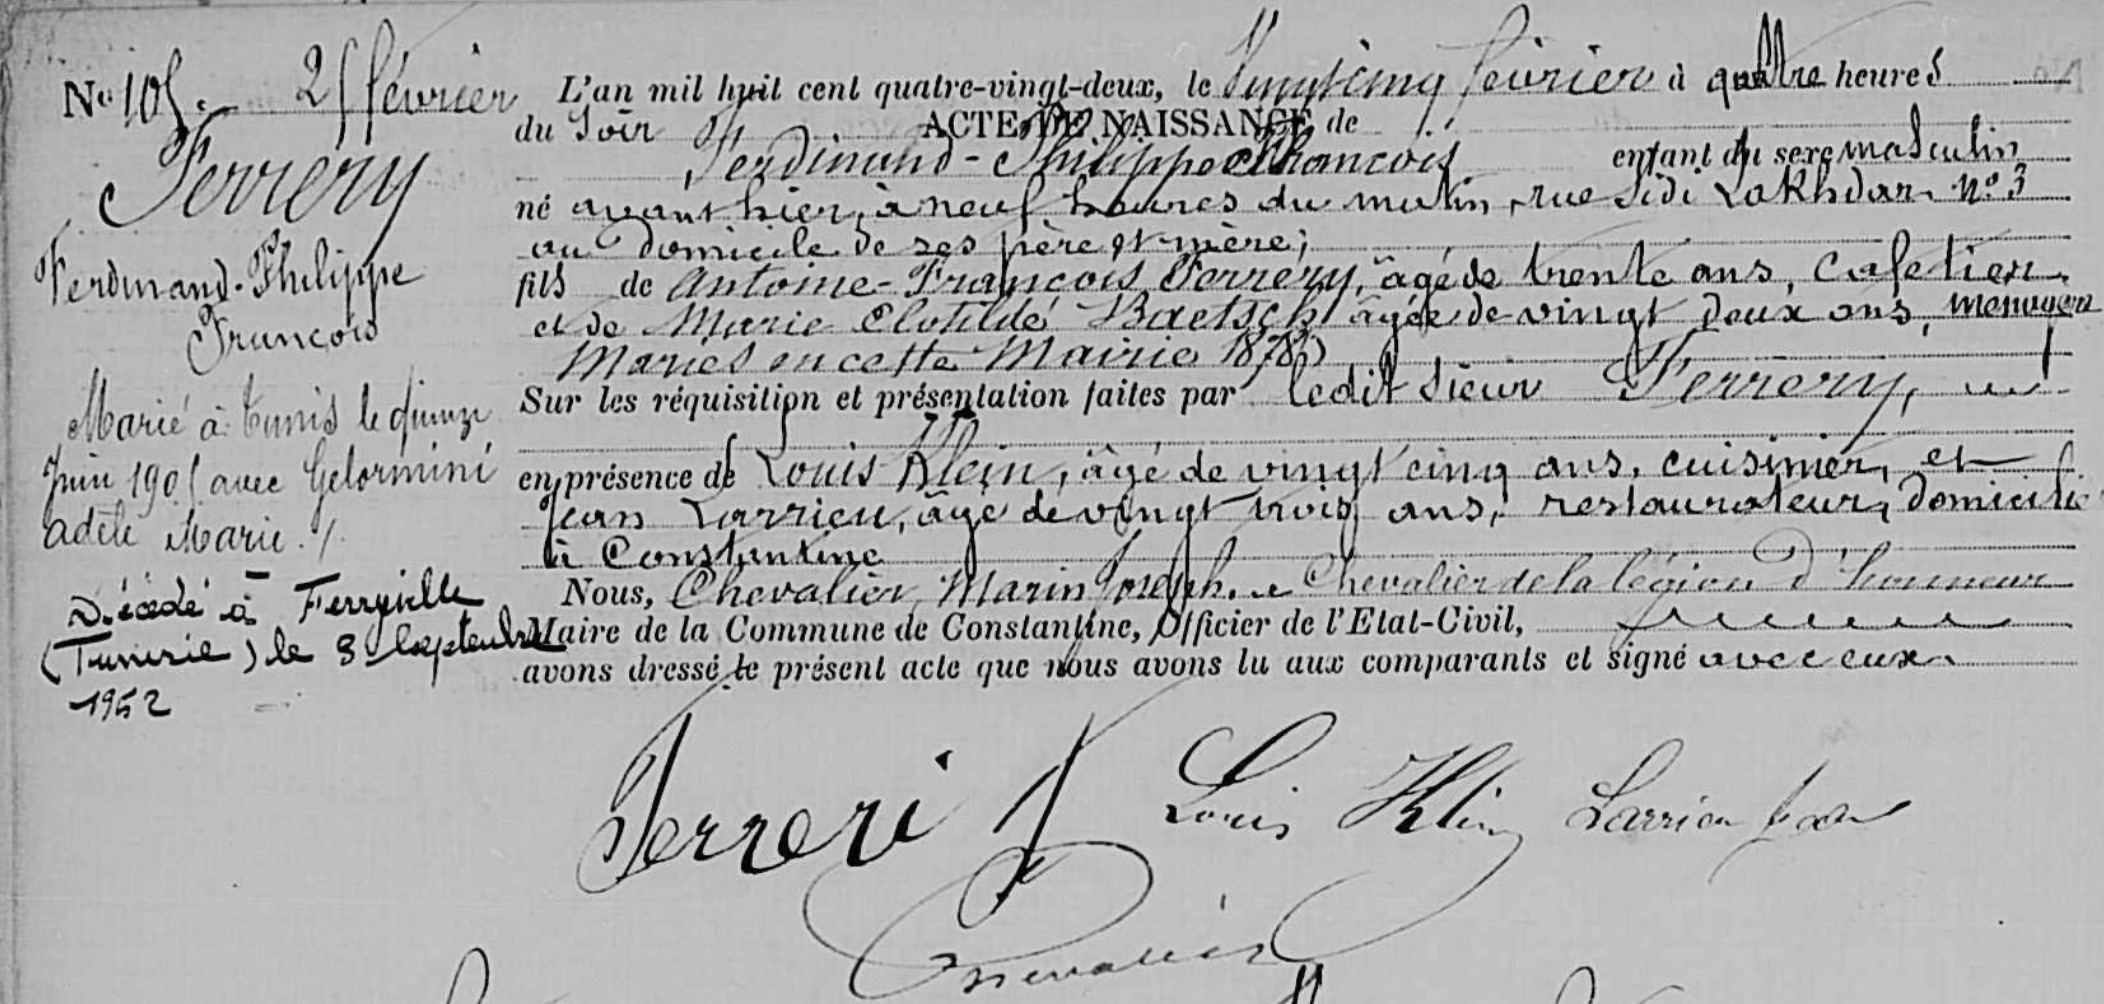 No 105. 25 février
Ferrery
Ferdinand-Philippe
François
Marié à Tunis le quinze
Juin 1905 avec Gelormini
Adèle Marie ./.
Décédé à Ferryville
(Tunisie) le 3 septembre
1952
L'an mil huit cent quatre-vingt-deux, le Vingt cinq février à quatre heures
du Soir ACTE DE NAISSANCE de
Ferdinand-Philippe François enfant du sexe masculin
né avant hier, à neuf heures du matin, rue Sidi Lakhdar No 3
au domicile de ses père et mère;
fils de Antoine-François Ferrery, âgé de trente ans, Cafetier
et de Marie Clotilde Baetsch âgée de vingt deux ans, menagère
Mariés en cette Mairie
Sur les réquisition et présentation faites par ledit Sieur Ferrery,
en présence de Louis Klein, âgé de vingt cinq ans, cuisinier, et
Jean Larrieu, âgé de vingt trois ans, restaurateur, domicilié
à Constantine
Nous, Chevalier, Marin Joseph, Chevalier de la légion d'honneur
Maire de la Commune de Constantine, Officier de l'Etat-Civil,
avons dressé le présent acte que nous avons lu aux comparants et signé avec eux.
Ferreri Louis Klein Larrieu Jean
Chevalier